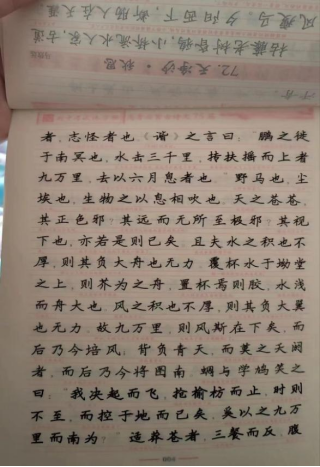 风瘦马，夕阳西下，断肠人在天涯。
枯藤老树昏鸦，小桥流水人家，古道
72.天净沙·秋思
者，志怪者也《谐》之言曰：“鹏之徙
于南冥也，水击三千里，抟扶摇而上者
九万里，去以六月息者也”野马也，尘
埃也，生物之以息相吹也，天之苍苍，
其正色邪？其远而无所至极邪？其视
下也，亦若是则已矣，且夫水之积也不
厚，则其负大舟也无力，覆杯水于坳堂
之上，则芥为之舟，置杯焉则胶，水浅
而舟大也，风之积也不厚，则其负大翼
也无力，故九万里，则风斯在下矣，而
后乃今培风；背负青天，而莫之夭阏
者，而后乃今将图南，蜩与学鸠笑之
曰：“我决起而飞，抢榆枋而止，时则
不至，而控于地而已矣，奚以之九万
里而南为？”适莽苍者，三餐而反，腹